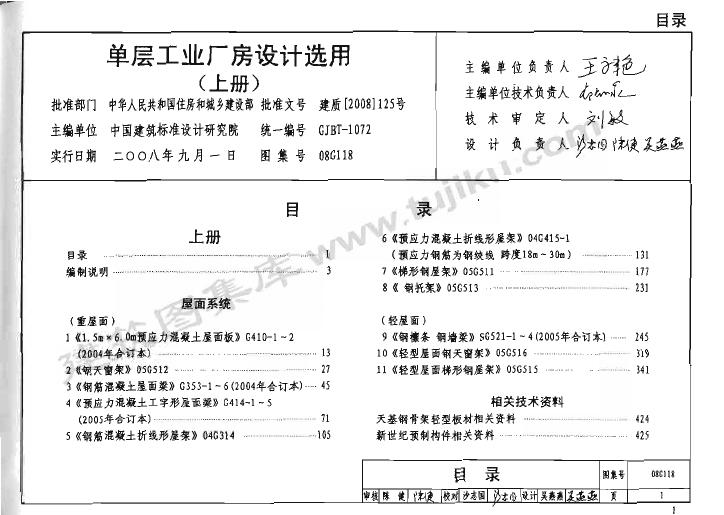 目录
单层工业厂房设计选用
(上册)
批准部门 中华人民共和国住房和城乡建设部 批准文号 建质[2008]125号
主编单位 中国建筑标准设计研究院 统一编号 GJBT-1072
实行日期 二〇〇八年九月一日 图集号 08G118
主编单位负责人
主编单位技术负责人
技术审定人 刘敏
设计负责人 沙志国 陈健 吴燕燕
目 录
上册
目录 1
编制说明 3
屋面系统
(重屋面)
1《1.5m*6.0m预应力混凝土屋面板》G410-1~2
(2004年合订本) 13
2《钢天窗架》05G512 27
3《钢筋混凝土屋面梁》G353-1~6(2004年合订本) 45
4《预应力混凝土工字形屋面梁》G414-1~5
(2005年合订本) 71
5《钢筋混凝土折线形屋架》04G314 105
6《预应力混凝土折线形屋架》04G415-1
(预应力钢筋为钢绞线 跨度18m~30m) 131
7《梯形钢屋架》05G511 177
8《 钢托架》05G513 231
(轻屋面)
9《钢檩条 钢墙梁》SG521-1~4(2005年合订本) 245
10《轻型屋面钢天窗架》05G516 319
11《轻型屋面梯形钢屋架》05G515 341
相关技术资料
天基钢骨架轻型板材相关资料 424
新世纪预制构件相关资料 425
目录 图集号 08G118
审核 陈健 陈健 校对 沙志国 沙志国 设计 吴燕燕 吴燕燕 页 1
1
建筑图集库.www.tujiku.com